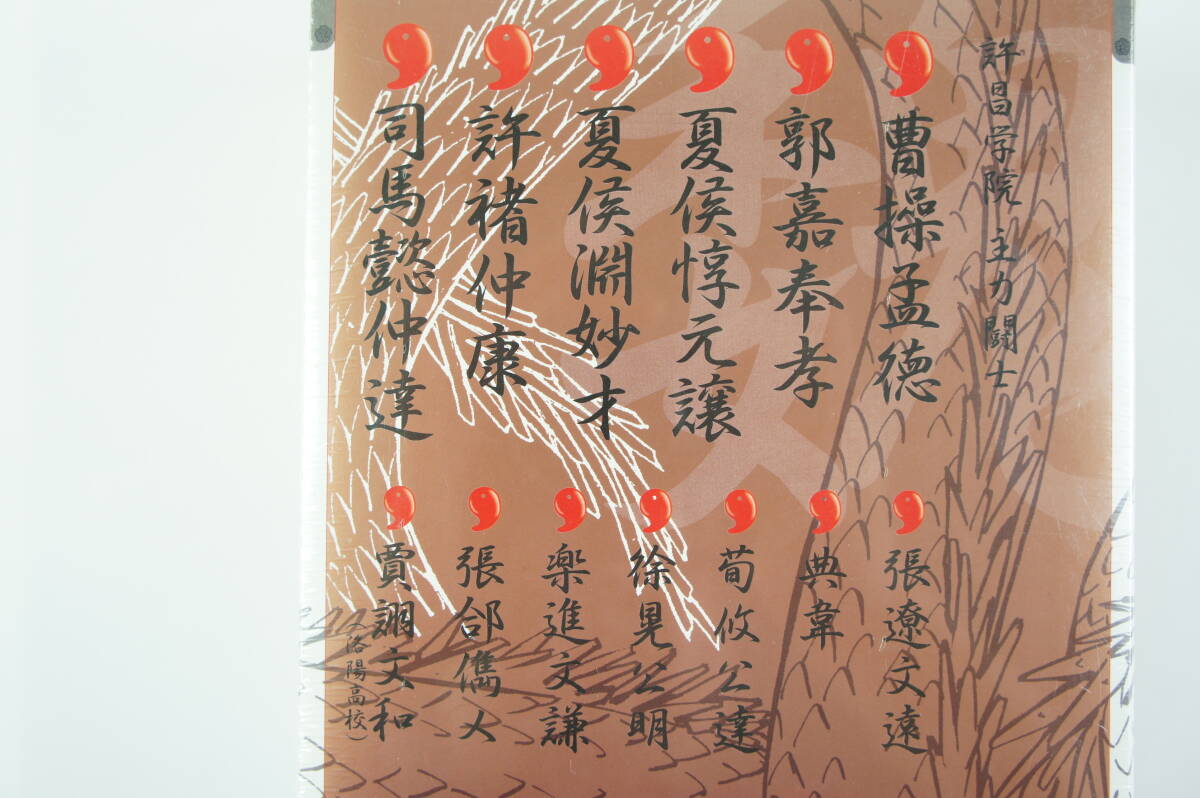 許昌学院 主力闘士
曹操孟徳
郭嘉奉孝
夏侯惇元譲
夏侯淵妙才
許褚仲康
司馬懿仲達
張遼文遠
典韋
荀攸公達
徐晃公明
楽進文謙
張郃儁乂
賈詡文和
（洛陽高校）